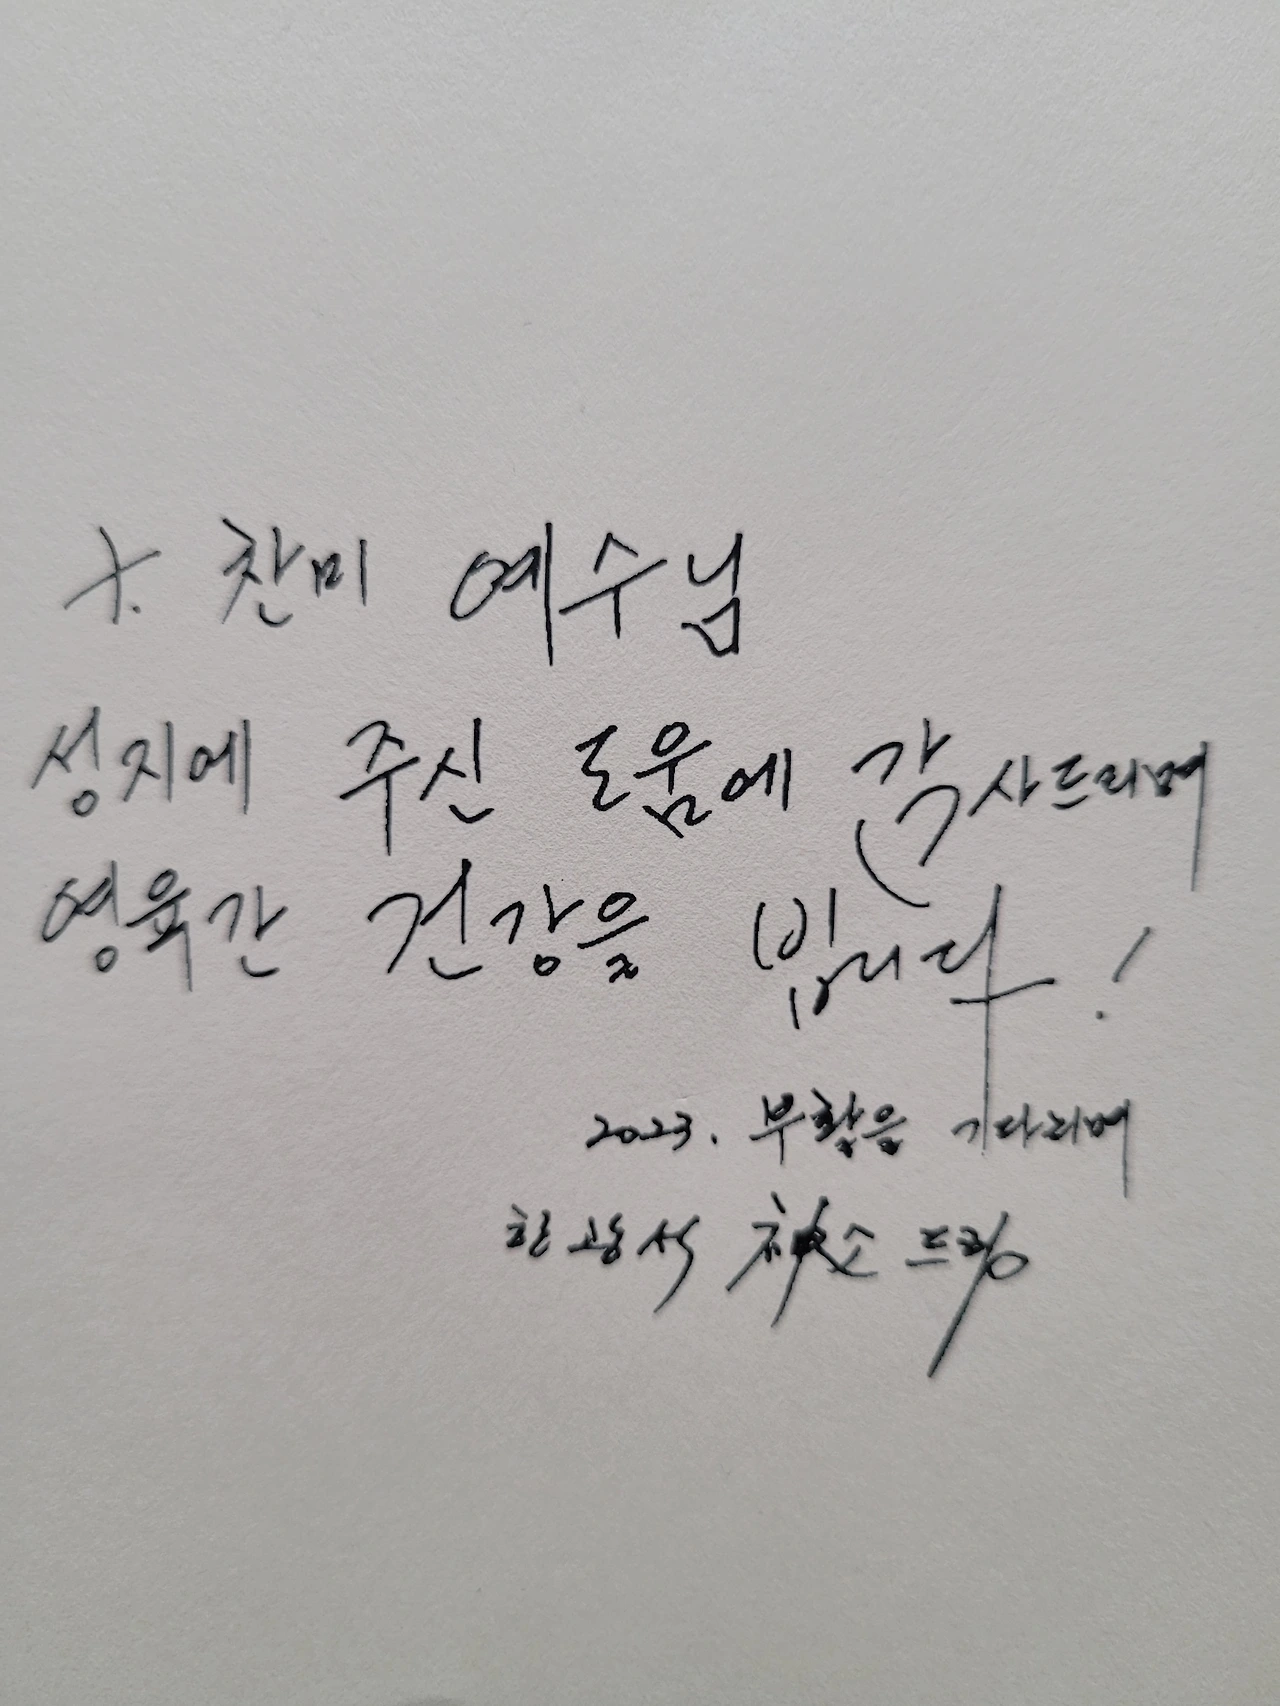 +. 찬미 예수님
성지에 주신 도움에 감사드리며
영육간 건강을 빕니다!
2023. 부활을 기다리며
한광석 드림